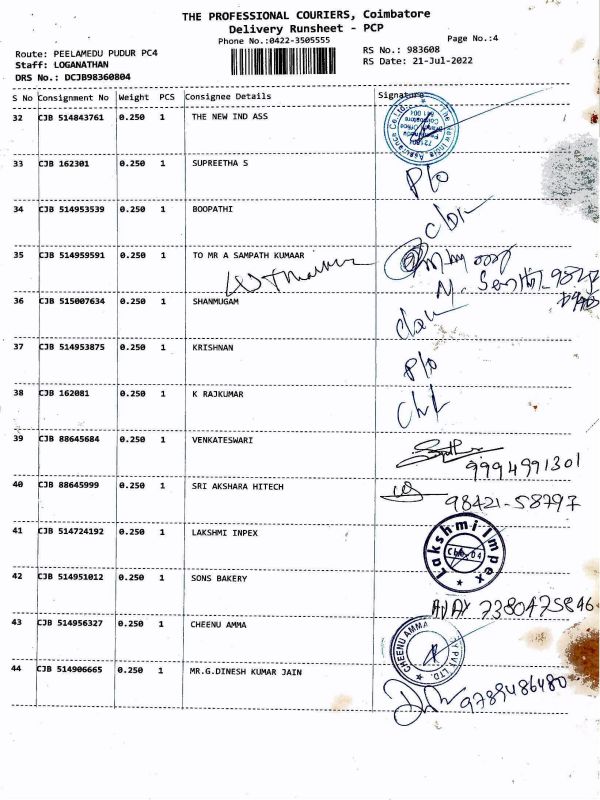 THE PROFESSIONAL COURIERS, Coimbatore
Delivery Runsheet - PCP
Phone No.:0422-3505555
Page No.:4
Route: PEELAMEDU PUDUR PC4
RS No.: 983608
Staff: LOGANATHAN
RS Date: 21-Jul-2022
DRS No.: DCJB98360804
S No Consignment No Weight PCS Consignee Details Signature
32 CJB 514843761 0.250 1 THE NEW IND ASS
The New India Assurance Co. Ltd.
721604
33 CJB 162301 0.250 1 SUPREETHA S
P/o
34 CJB 514953539 0.250 1 BOOPATHI
35 CJB 514959591 0.250 1 TO MR A SAMPATH KUMAAR
36 CJB 515007634 0.250 1 SHANMUGAM
37 CJB 514953875 0.250 1 KRISHNAN
P/o
38 CJB 162081 0.250 1 K RAJKUMAR
39 CJB 88645684 0.250 1 VENKATESWARI
9994991301
40 CJB 88645999 0.250 1 SRI AKSHARA HITECH
98421-58797
41 CJB 514724192 0.250 1 LAKSHMI INPEX
Lakshmi Impex
42 CJB 514951012 0.250 1 SONS BAKERY
AJAY 7380475846
43 CJB 514956327 0.250 1 CHEENU AMMA
CHEENU AMMA
PVT. LTD.
44 CJB 514906665 0.250 1 MR.G.DINESH KUMAR JAIN
9789486480